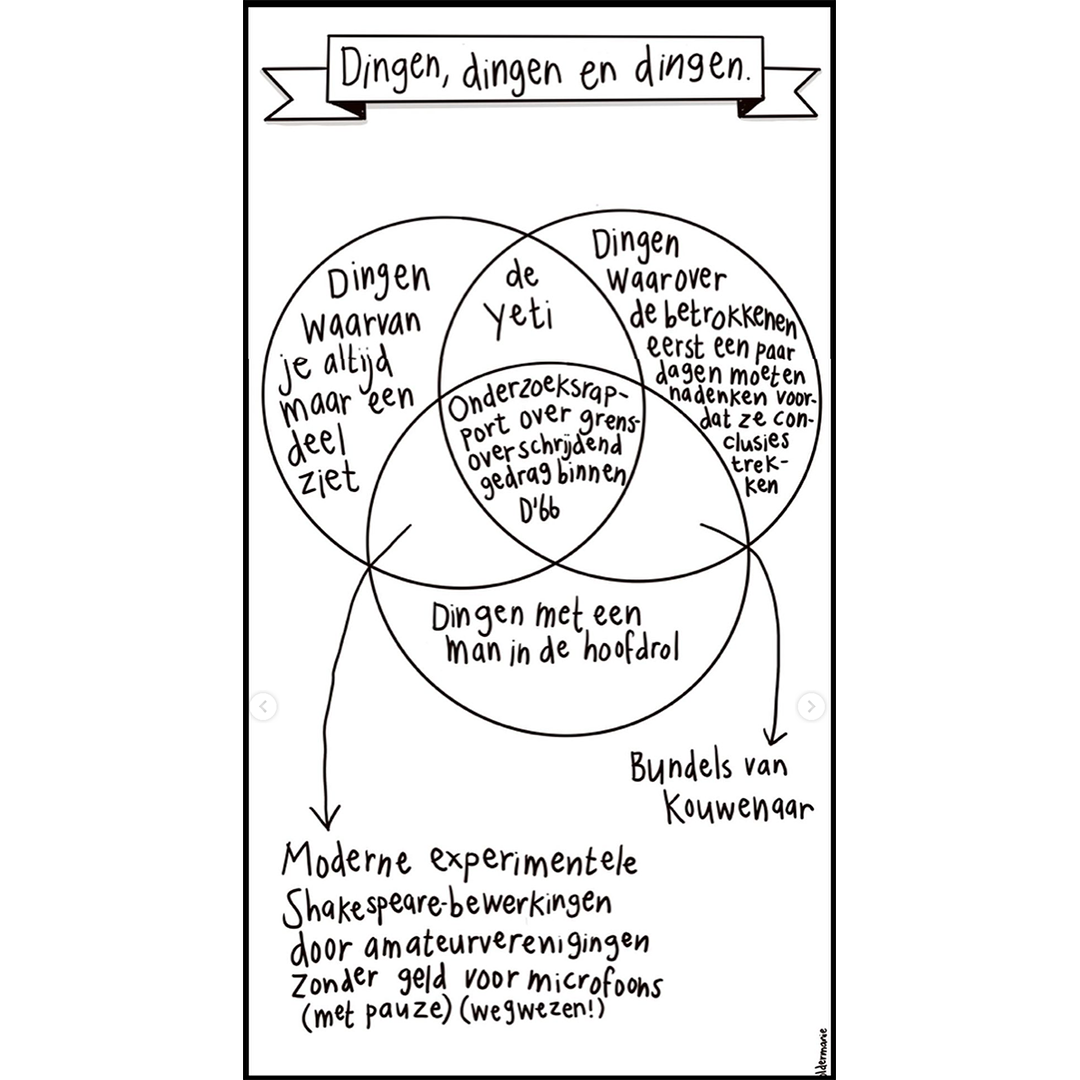 Dingen, dingen en dingen.
Dingen
waarvan
je altijd
maar een
deel
ziet
de
yeti
Dingen
waarover
de betrokkenen
eerst een paar
dagen moeten
nadenken voor-
dat ze con-
clusies
trek-
ken
Onderzoeksrap-
port over grens-
overschrijdend
gedrag binnen
D'66
Dingen met een
man in de hoofdrol
Bundels van
Kouwenaar
Moderne experimentele
Shakespeare-bewerkingen
door amateurverenigingen
zonder geld voor microfoons
(met pauze) (wegwezen!)
oldermanie